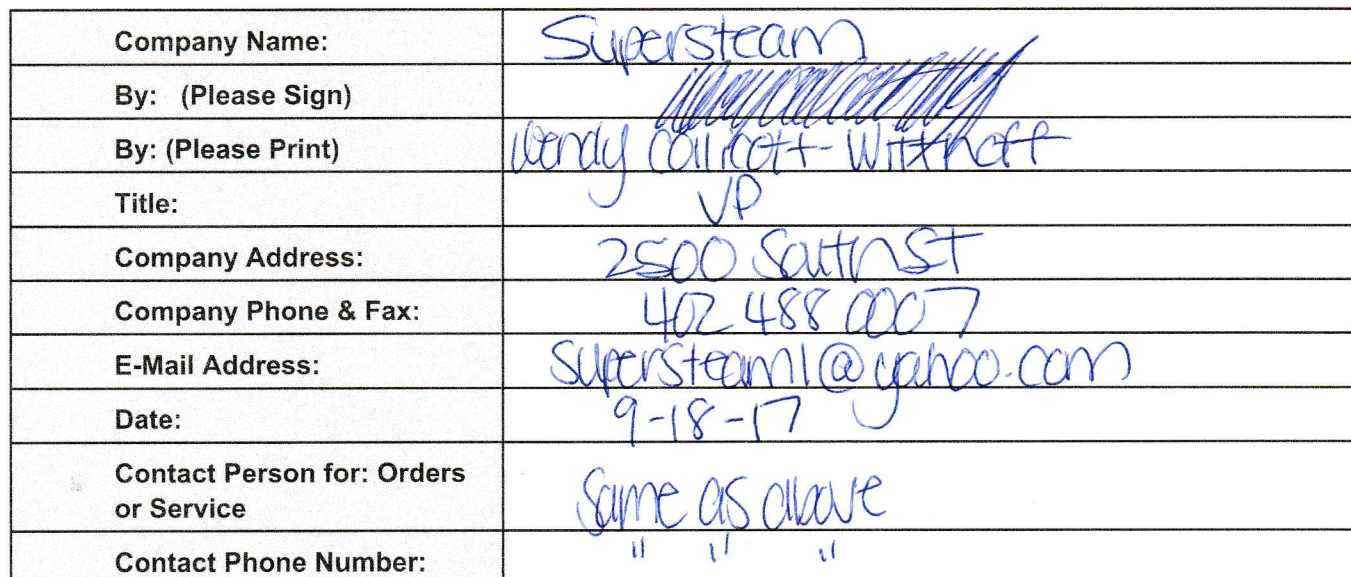 Company Name: Supersteam
By: (Please Sign)
By: (Please Print) Wendy Collicott-Witthoff
Title: VP
Company Address: 2500 South St
Company Phone & Fax: 402 488 0007
E-Mail Address: supersteam1@yahoo.com
Date: 9-18-17
Contact Person for: Orders
or Service Same as above
Contact Phone Number: " " "